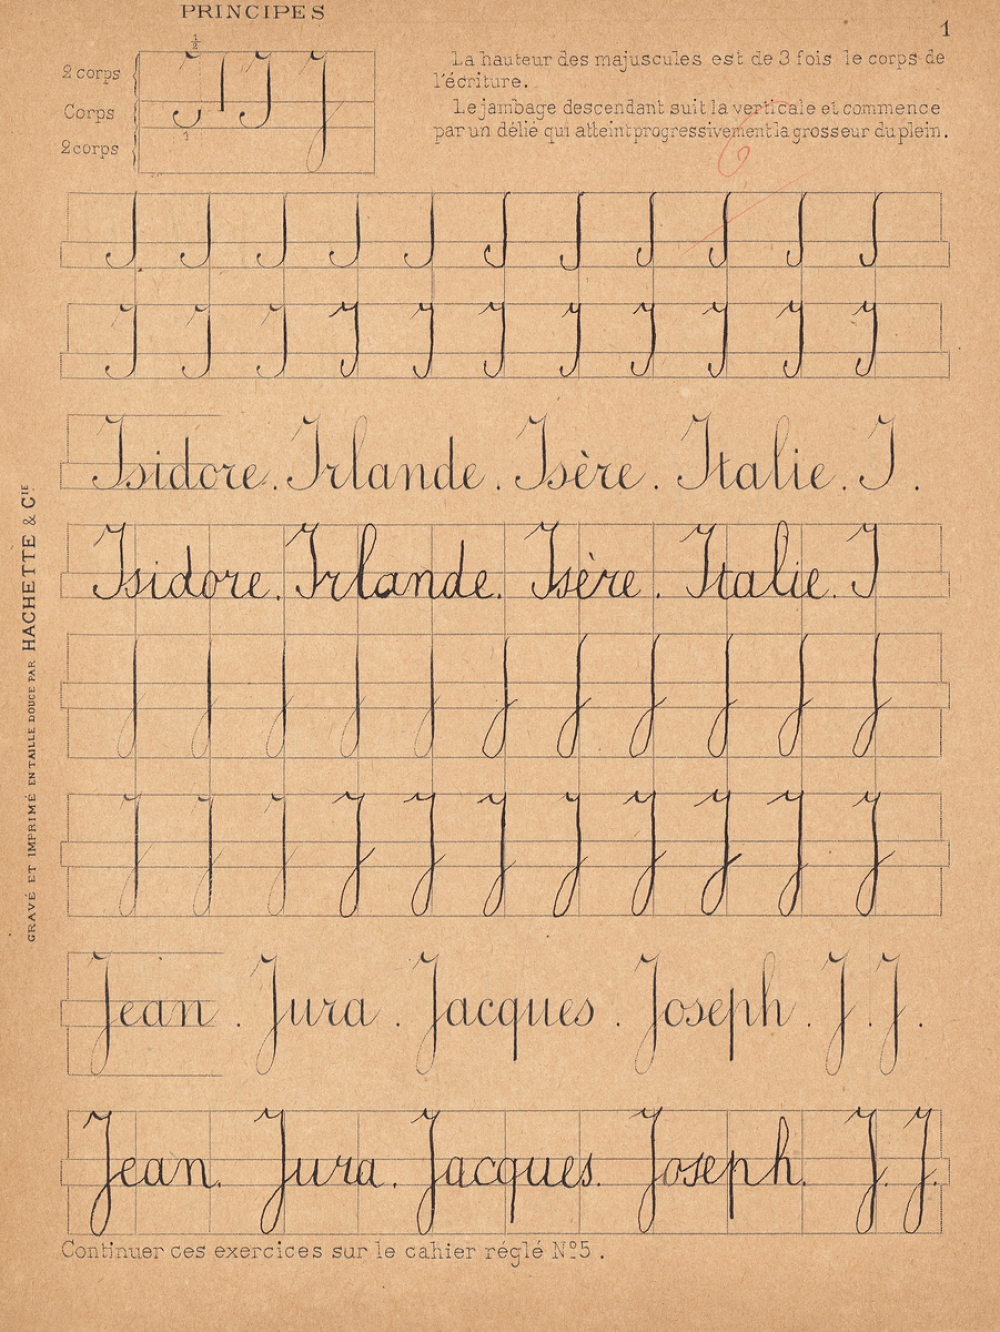 PRINCIPES
1
½
2 corps
Corps
2 corps
La hauteur des majuscules est de 3 fois le corps de
l'écriture.
Le jambage descendant suit la verticale et commence
par un délié qui atteint progressivement la grosseur du plein.
6
J J J J J J J J J J J
J J J J J J J J J J J
Isidore. Irlande. Isère. Italie. I.
Isidore. Irlande. Isère. Italie. I
J J J J J J J J J J J
J J J J J J J J J J J
Jean. Jura. Jacques. Joseph. J. J.
Jean. Jura. Jacques. Joseph. J. J.
Continuer ces exercices sur le cahier réglé Nº 5.
GRAVÉ ET IMPRIMÉ EN TAILLE DOUCE PAR HACHETTE & Cie